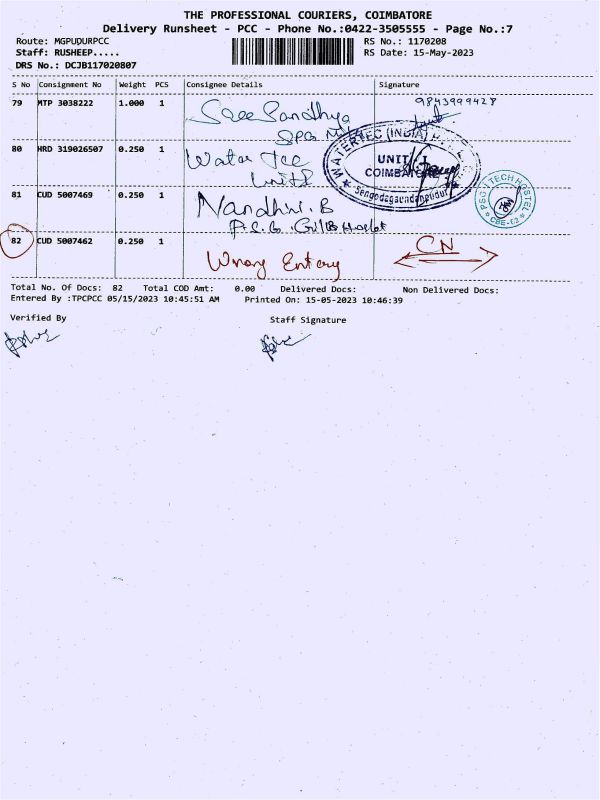 THE PROFESSIONAL COURIERS, COIMBATORE
Delivery Runsheet - PCC - Phone No.:0422-3505555 - Page No.:7
Route: MGPUDURPCC
RS No.: 1170208
Staff: RUSHEEP.....
RS Date: 15-May-2023
DRS No.: DCJB117020807
S No Consignment No Weight PCS Consignee Details Signature
79 MTP 3038222 1.000 1 Sree Sandhya 9843999428
80 HRD 319026507 0.250 1 Water Tec
WATERTEC (INDIA)
UNIT-I
COIMBATORE
81 CUD 5007469 0.250 1 Nandhini. B
P.S.G. Girls Hostel
PSG TECH HOSTEL
82 CUD 5007462 0.250 1 Wrong Entry CN
Total No. Of Docs: 82 Total COD Amt: 0.00 Delivered Docs: Non Delivered Docs:
Entered By :TPCPCC 05/15/2023 10:45:51 AM Printed On: 15-05-2023 10:46:39
Verified By Staff Signature